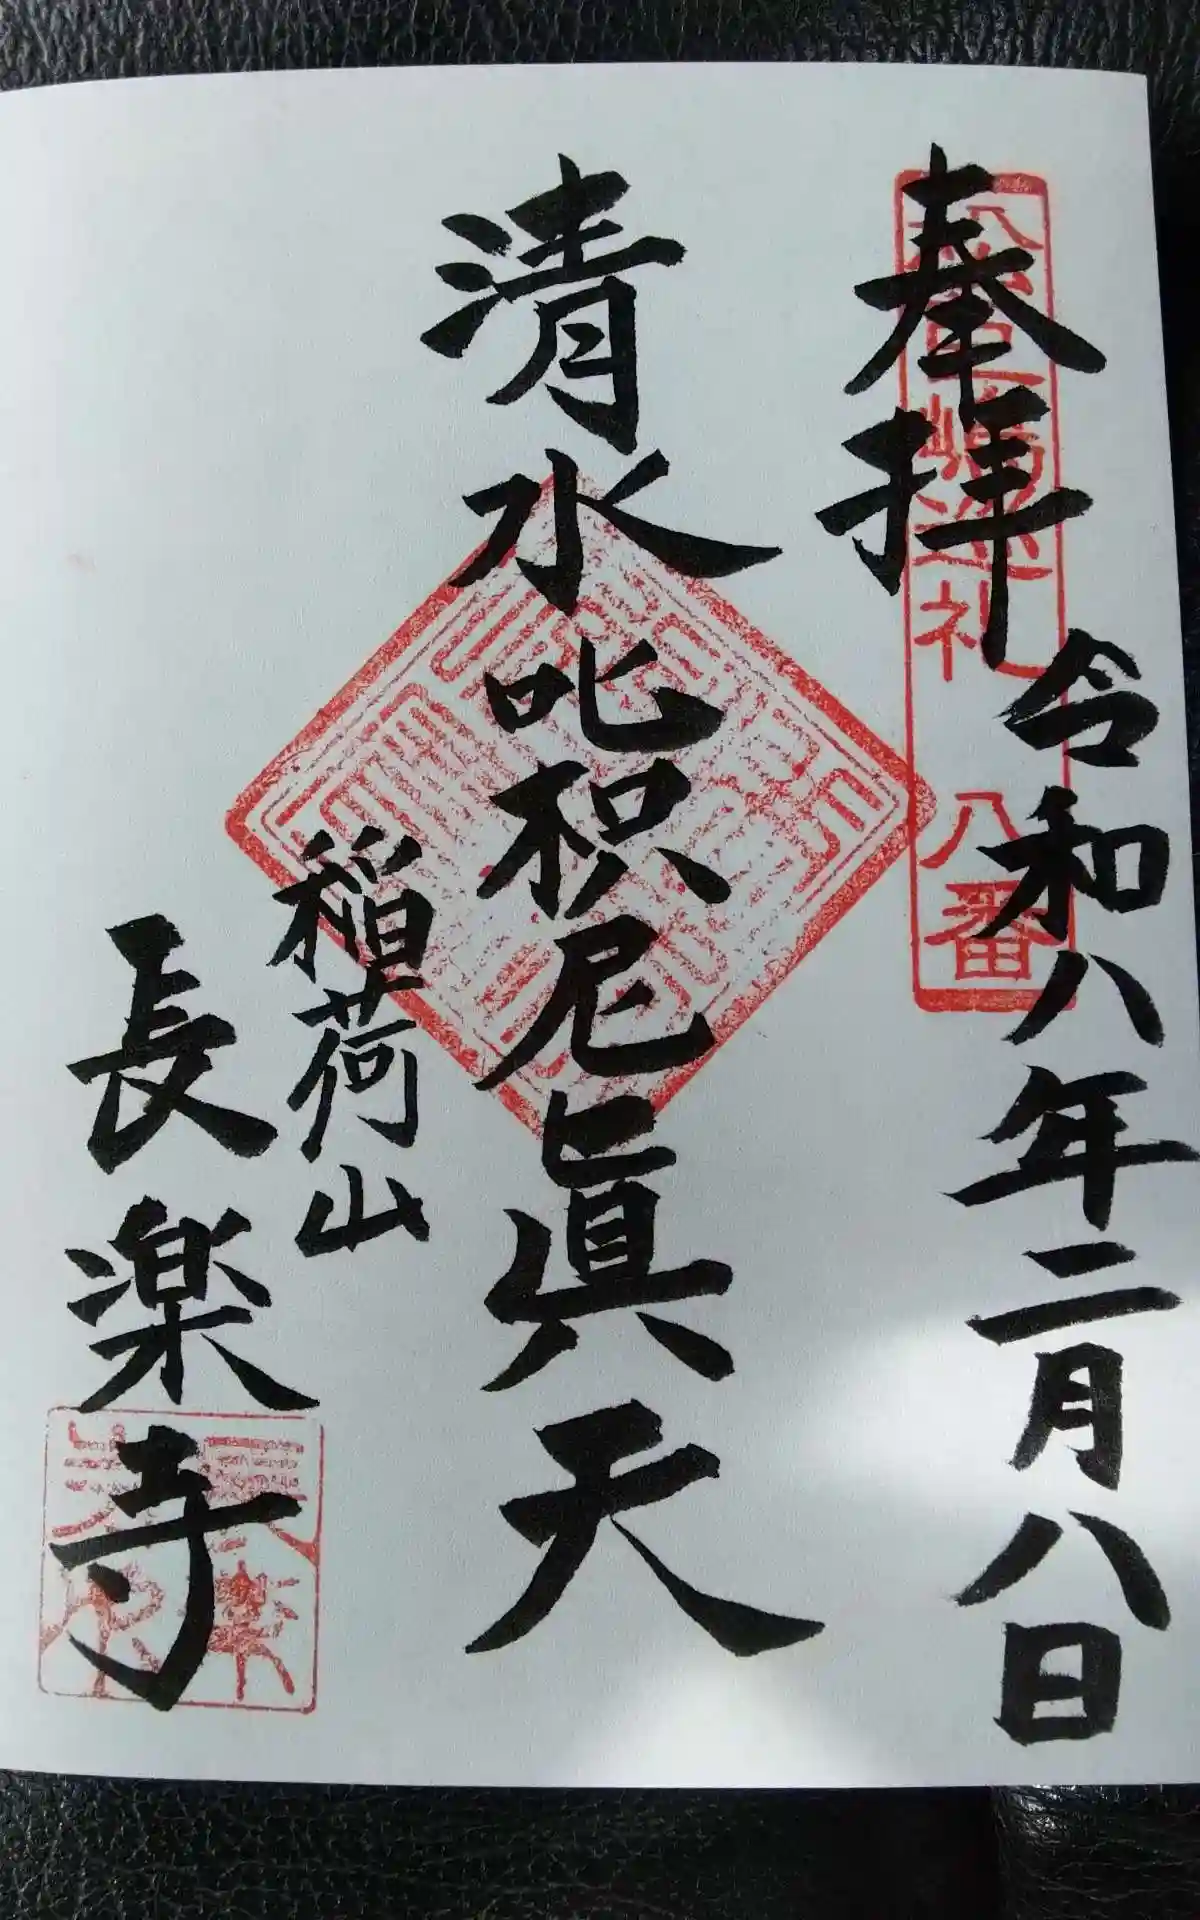 奉拝
令和八年二月八日
巡礼
八番
清水叱枳尼眞天
稲荷山
長楽寺